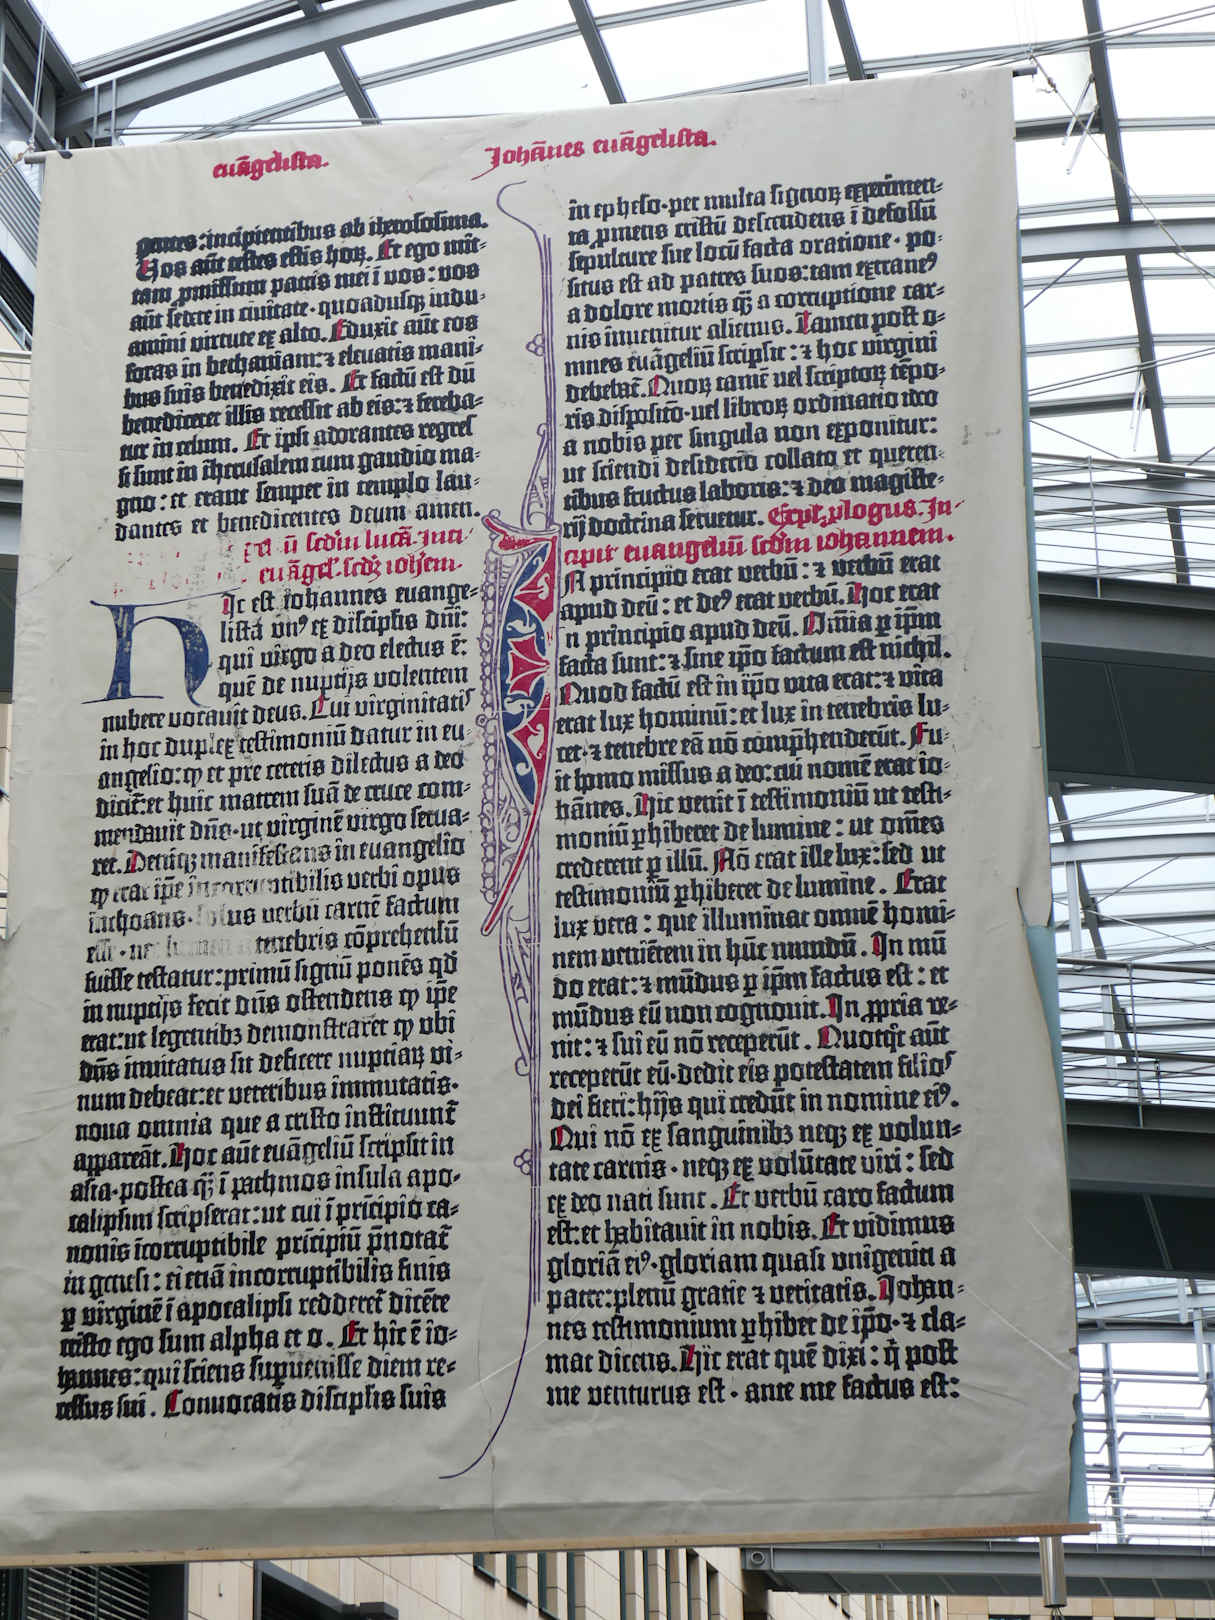 euāgelista.
Johānes euāgelista.
gentes: incipientibus ab iherosolima.
Vos aūt testes estis horꝝ. Et ego mit-
tam ꝓmissum patris mei ī vos: vos
aūt sedete in ciuitate · quoadusqꝫ indu-
amini virtute ex alto. Eduxit aūt eos
foras in bethaniam: ⁊ eleuatis mani-
bus suis benedixit eis. Et factū est dū
benediceret illis recessit ab eis: ⁊ fereba-
tur in celum. Et ipsi adorantes regres-
si sunt in iherusalem cum gaudio ma-
gno: et erant semper in templo lau-
dantes et benedicentes deum amen.
scd'm lucā. Inci
euāgel'. scdꝫ ioh'em.
Hic est iohannes euange-
lista vn⁹ ex discipl'is dn̄i:
qui virgo a deo electus ē:
quē de nuptijs volentem
nubere vocauit deus. Cui virginitatis
in hoc duplex testimoniū datur in eu-
angelio: ꝙ et pre ceteris dilectus a deo
dicit᷑: et huic matrem suā de cruce com-
mendauit dn̄s · ut virginē virgo serua-
ret. Deniqꝫ manifestans in euangelio
ꝙ erat ip̄e incorruptibilis verbi opus
inchoans · solus verbū carnē factum
esse · nec lumen a tenebris cōprehensū
fuisse testatur: primū signū ponēs qd̄
in nuptijs fecit dn̄s ostendens ꝙ ip̄e
erat: ut legentibꝫ demonstraret ꝙ ubi
dn̄s inuitatus sit deficere nuptiaꝝ vi-
num debeat: et veteribus immutatis ·
noua omnia que a cristo instituunt᷑
appareāt. Hoc aūt euāgeliū scripsit in
asia · postea q̄ꝫ ī pathmos insula apo-
calipsim scripserat: ut cui ī prīcipio ca-
nonis īcorruptibile prīcipiū p̄notat᷑
in genesi: ei etiā incorruptibilis finis
ꝑ virginē ī apocalipsi redderet᷑ dicēte
cristo ego sum alpha et o. Et hic ē io-
hannes: qui sciens supuenisse diem re-
cessus sui. Conuocatis discipl'is suis
in epheso · per multa signoꝝ experimen-
ta ꝓmens cristū descendens ī defossū
sepulture sue locū facta oratione · po-
situs est ad patres suos: tam extrane⁹
a dolore mortis q̄ꝫ a corruptione car-
nis inuenitur alienus. Tamen post o-
mnes euāgeliū scripsit: ⁊ hoc virgini
debebat᷑. Quoꝝ tamē vel scriptoꝝ tēpo-
ris dispositō · vel libroꝝ ordinatio ideo
a nobis per singula non exponitur:
ut sciendi desiderio collato et queren-
tibus fructus laboris: ⁊ deo magiste-
rij doctrina seruetur. Expt' ꝓlogus. In-
cipit euangeliū scd'm iohannem.
In principio erat verbū: ⁊ verbū erat
apud deū: et de⁹ erat verbū. Hoc erat
in principio apud deū. Omīa ꝑ ip̄m
facta sunt: ⁊ sine ip̄o factum est nichil.
Quod factū est in ip̄o vita erat: ⁊ vita
erat lux hominū: et lux in tenebris lu-
cet · ⁊ tenebre eā nō comp̄henderūt. Fu-
it homo missus a deo: cui nomē erat io-
hānes. Hic venit ī testimoniū ut testi-
moniū ꝑhiberet de lumine: ut om̄es
crederent ꝑ illū. Nō erat ille lux: sed ut
testimoniū ꝑhiberet de lumine. Erat
lux vera: que illuminat omnē homi-
nem veniētem in hūc mundū. In mū
do erat: ⁊ mūdus ꝑ ip̄m factus est: et
mūdus eū non cognouit. In ꝓpria ve-
nit: ⁊ sui eū nō receperūt. Quotqͦt aūt
receperūt eū · dedit eis potestatem filios
dei fieri: hijs qui credūt in nomine ei⁹.
Qui nō ex sanguinibꝫ neqꝫ ex volun-
tate carnis · neqꝫ ex volūtate viri: sed
ex deo nati sunt. Et verbū caro factum
est: et habitauit in nobis. Et vidimus
gloriā ei⁹ · gloriam quasi vnigeniti a
patre: plenū gratie ⁊ veritatis. Johan-
nes testimonium ꝑhibet de ip̄o · ⁊ cla-
mat dicens. Hic erat quē dixi: q̇ post
me venturus est · ante me factus est: